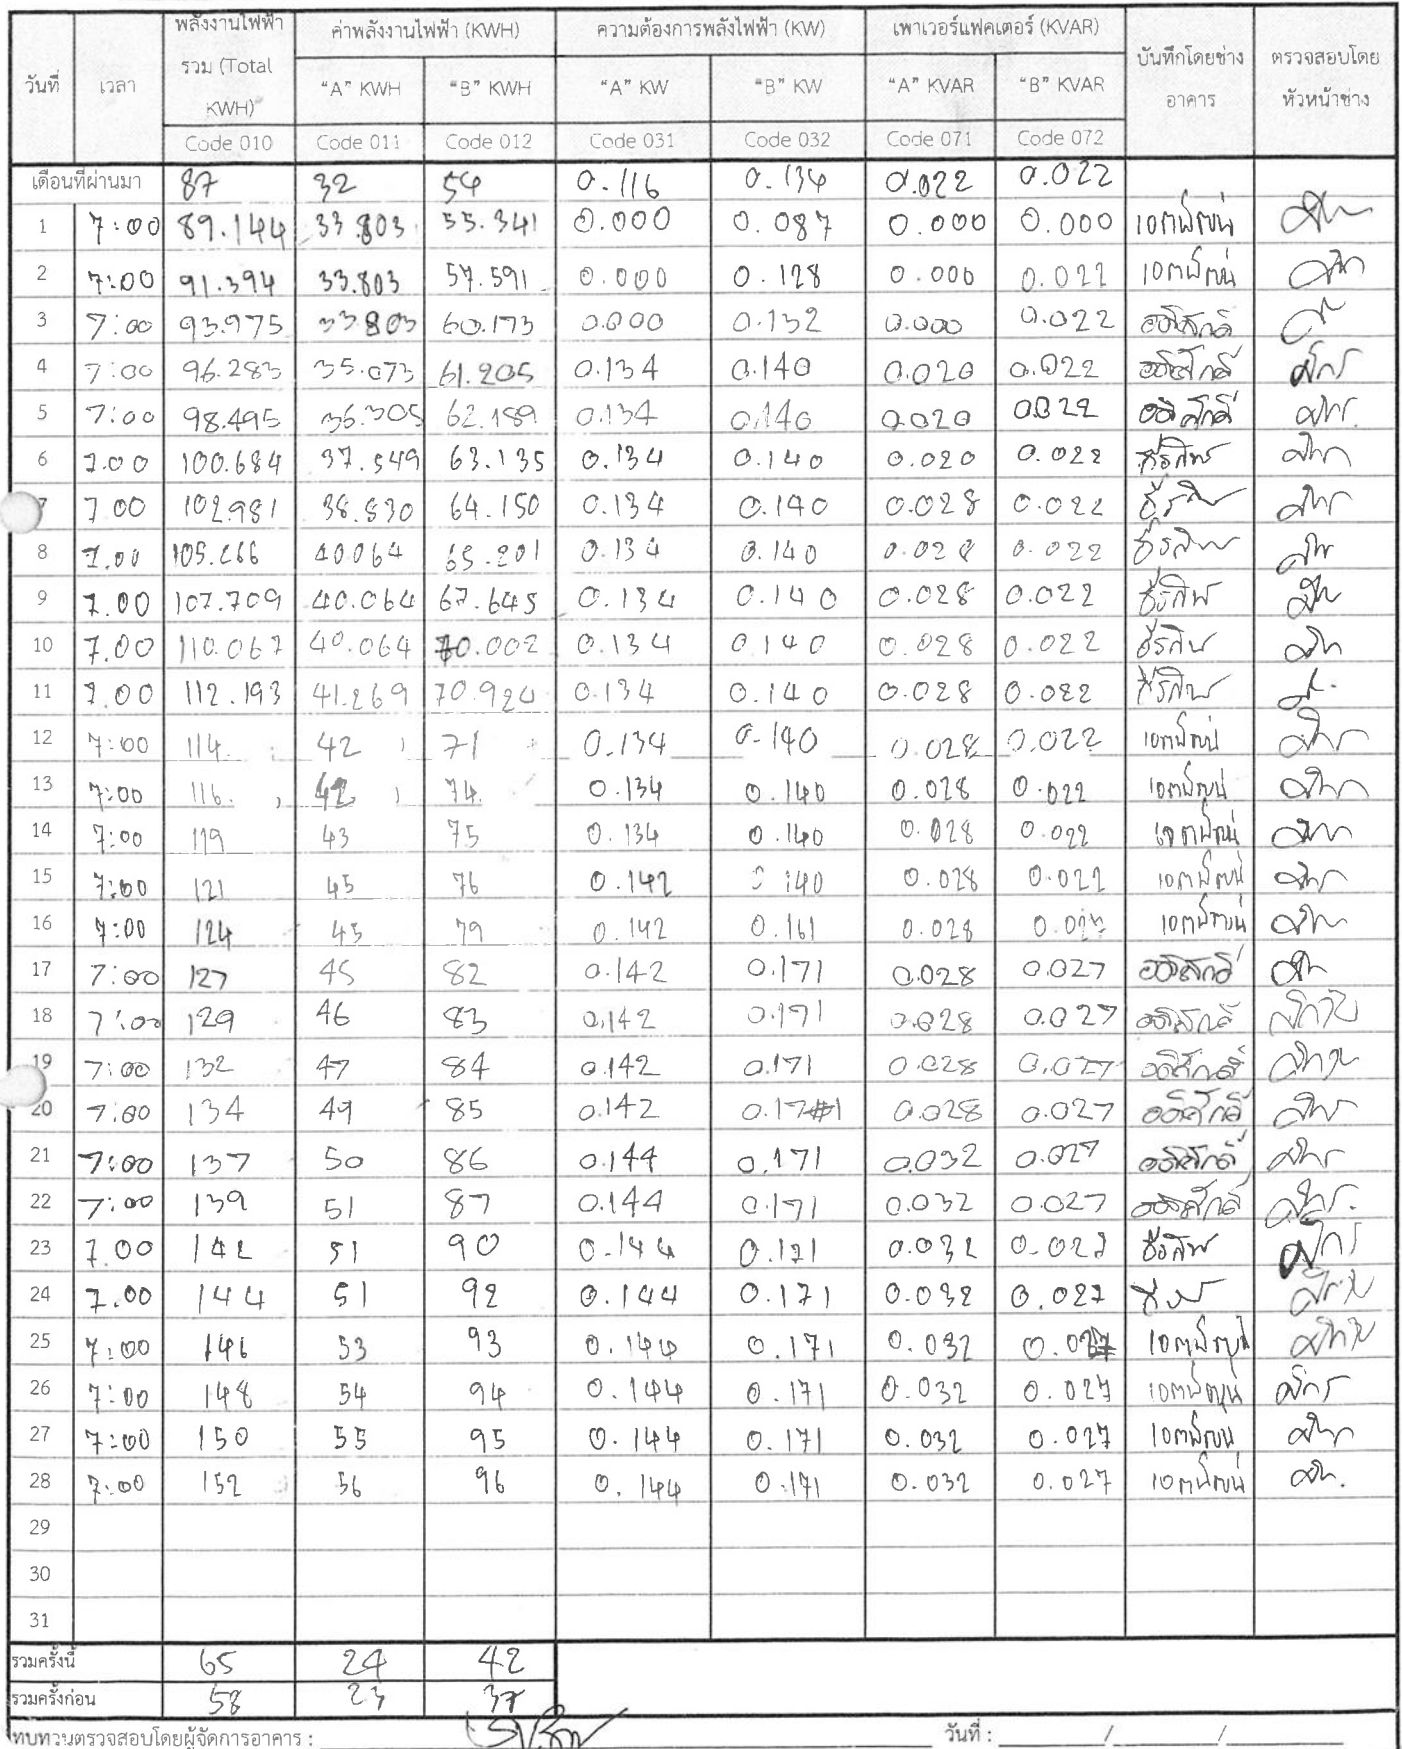 วันที่ เวลา พลังงานไฟฟ้ารวม (Total KWH) ค่าพลังงานไฟฟ้า (KWH) ความต้องการพลังไฟฟ้า (KW) เพาเวอร์แฟคเตอร์ (KVAR) บันทึกโดยช่างอาคาร ตรวจสอบโดยหัวหน้าช่าง
"A" KWH "B" KWH "A" KW "B" KW "A" KVAR "B" KVAR
Code 010 Code 011 Code 012 Code 031 Code 032 Code 071 Code 072
เดือนที่ผ่านมา 87 32 54 0.116 0.134 0.022 0.022
1 7:00 89.144 33.803 55.341 0.000 0.087 0.000 0.000
2 7:00 91.394 33.803 57.591 0.000 0.128 0.000 0.022
3 7:00 93.975 33.803 60.173 0.000 0.132 0.000 0.022
4 7:00 96.283 35.073 61.205 0.134 0.140 0.020 0.022
5 7:00 98.495 36.305 62.189 0.134 0.140 0.020 0.022
6 7.00 100.684 37.549 63.135 0.134 0.140 0.020 0.022
7 7.00 102.981 38.830 64.150 0.134 0.140 0.028 0.022
8 7.00 105.266 40.064 65.201 0.134 0.140 0.028 0.022
9 7.00 107.709 40.064 67.645 0.134 0.140 0.028 0.022
10 7.00 110.067 40.064 70.002 0.134 0.140 0.028 0.022
11 7.00 112.193 41.269 70.924 0.134 0.140 0.028 0.022
12 7:00 114 42 71 0.134 0.140 0.028 0.022
13 7:00 116 42 74 0.134 0.140 0.028 0.022
14 7:00 119 43 75 0.134 0.140 0.028 0.022
15 7:00 121 45 76 0.142 0.140 0.028 0.022
16 7:00 124 45 79 0.142 0.161 0.028
17 7:00 127 45 82 0.142 0.171 0.028 0.027
18 7:00 129 46 83 0.142 0.171 0.028 0.027
19 7:00 132 47 84 0.142 0.171 0.028 0.027
20 7:00 134 49 85 0.142 0.171 0.028 0.027
21 7:00 137 50 86 0.144 0.171 0.032 0.027
22 7:00 139 51 87 0.144 0.171 0.032 0.027
23 7.00 142 51 90 0.144 0.171 0.032 0.027
24 7.00 144 51 92 0.144 0.171 0.032 0.027
25 7:00 146 53 93 0.144 0.171 0.032 0.027
26 7:00 148 54 94 0.144 0.171 0.032 0.027
27 7:00 150 55 95 0.144 0.171 0.032 0.027
28 7:00 152 56 96 0.144 0.171 0.032 0.027
29
30
31
รวมครั้งนี้ 65 24 42
รวมครั้งก่อน 58 23 37
ทบทวนตรวจสอบโดยผู้จัดการอาคาร : วันที่ : / /